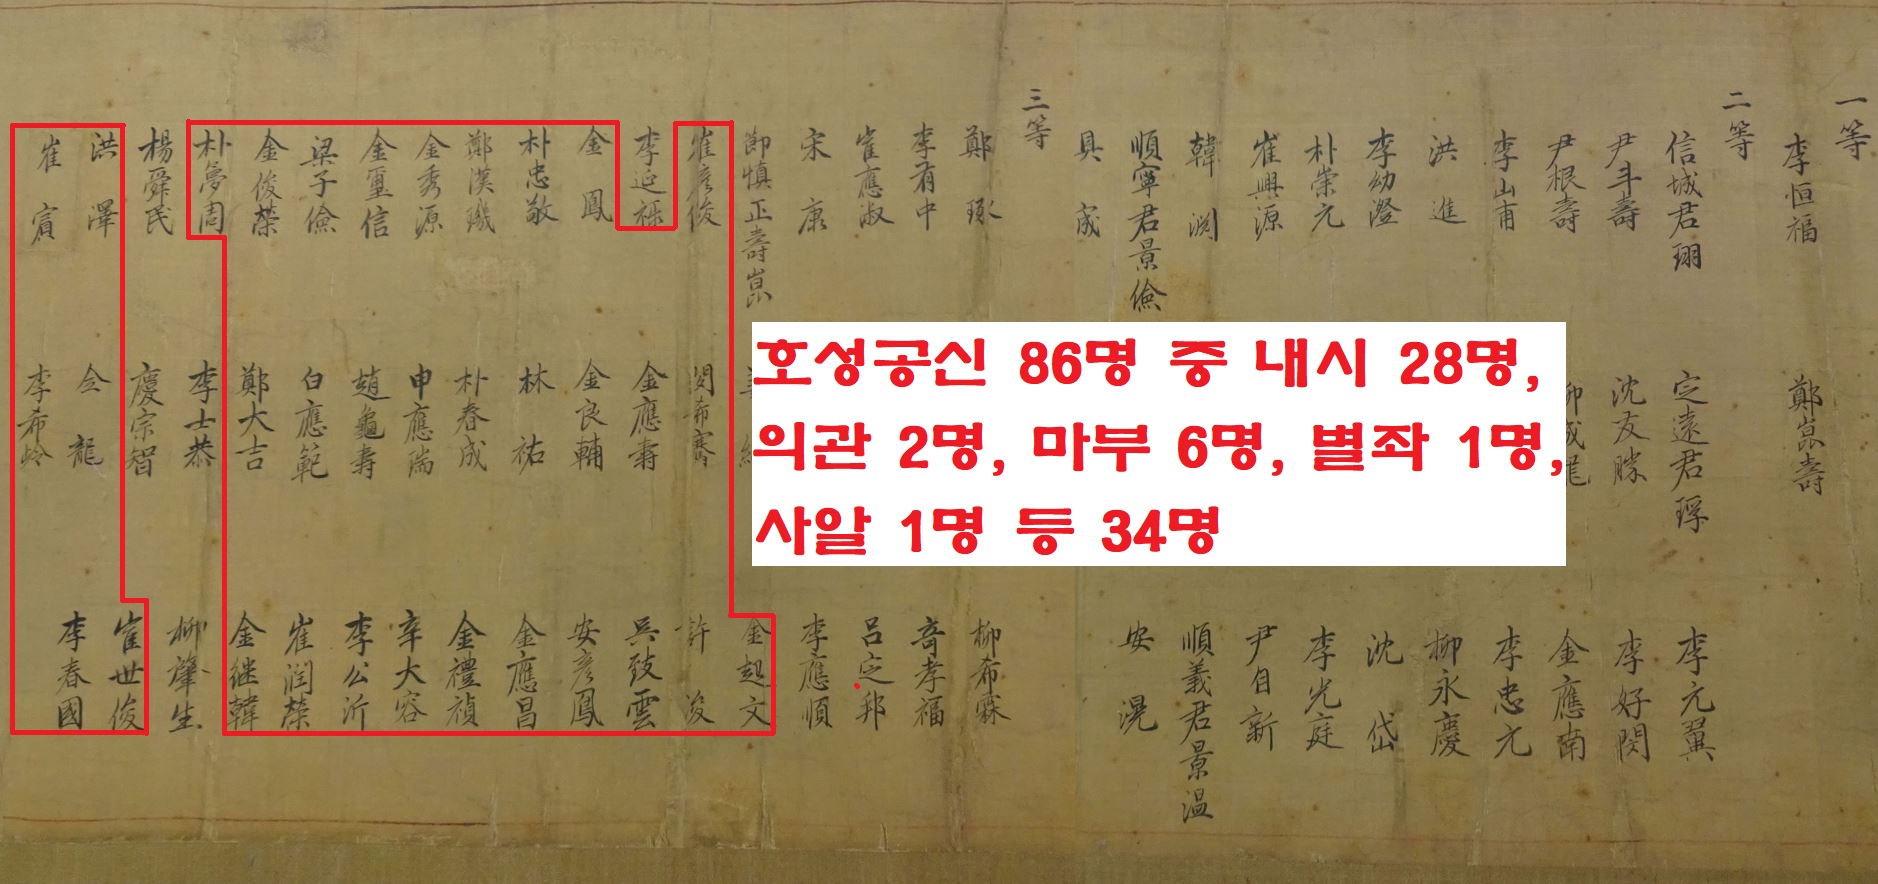 一等
李恒福
鄭崑壽
二等
信城君珝
定遠君琈
李元翼
尹斗壽
沈友勝
李好閔
尹根壽
金應南
李山甫
李忠元
洪進
柳永慶
李幼澄
沈岱
朴崇元
李光庭
崔興源
尹自新
韓淵
順義君景温
順寧君景儉
安滉
具宬
三等
鄭琢
柳希霖
李有中
奇孝福
崔應淑
呂定邦
宋康
李應順
節慎正壽崑
金起文
崔彦俊
閔希蹇
許浚
李延祿
金應壽
吳致雲
金鳳
金良輔
安彦鳳
朴忠敬
林祐
金應昌
鄭漢璣
朴春成
金禮禎
金秀源
申應瑞
辛大容
金璽信
趙龜壽
李公沂
梁子儉
白應範
崔潤榮
金俊榮
鄭大吉
金继韓
朴夢周
李士恭
柳肇生
楊舜民
慶宗智
崔世俊
洪澤
全龍
李春國
崔賓
李希岭
호성공신 86명 중 내시 28명,
의관 2명, 마부 6명, 별좌 1명,
사알 1명 등 34명